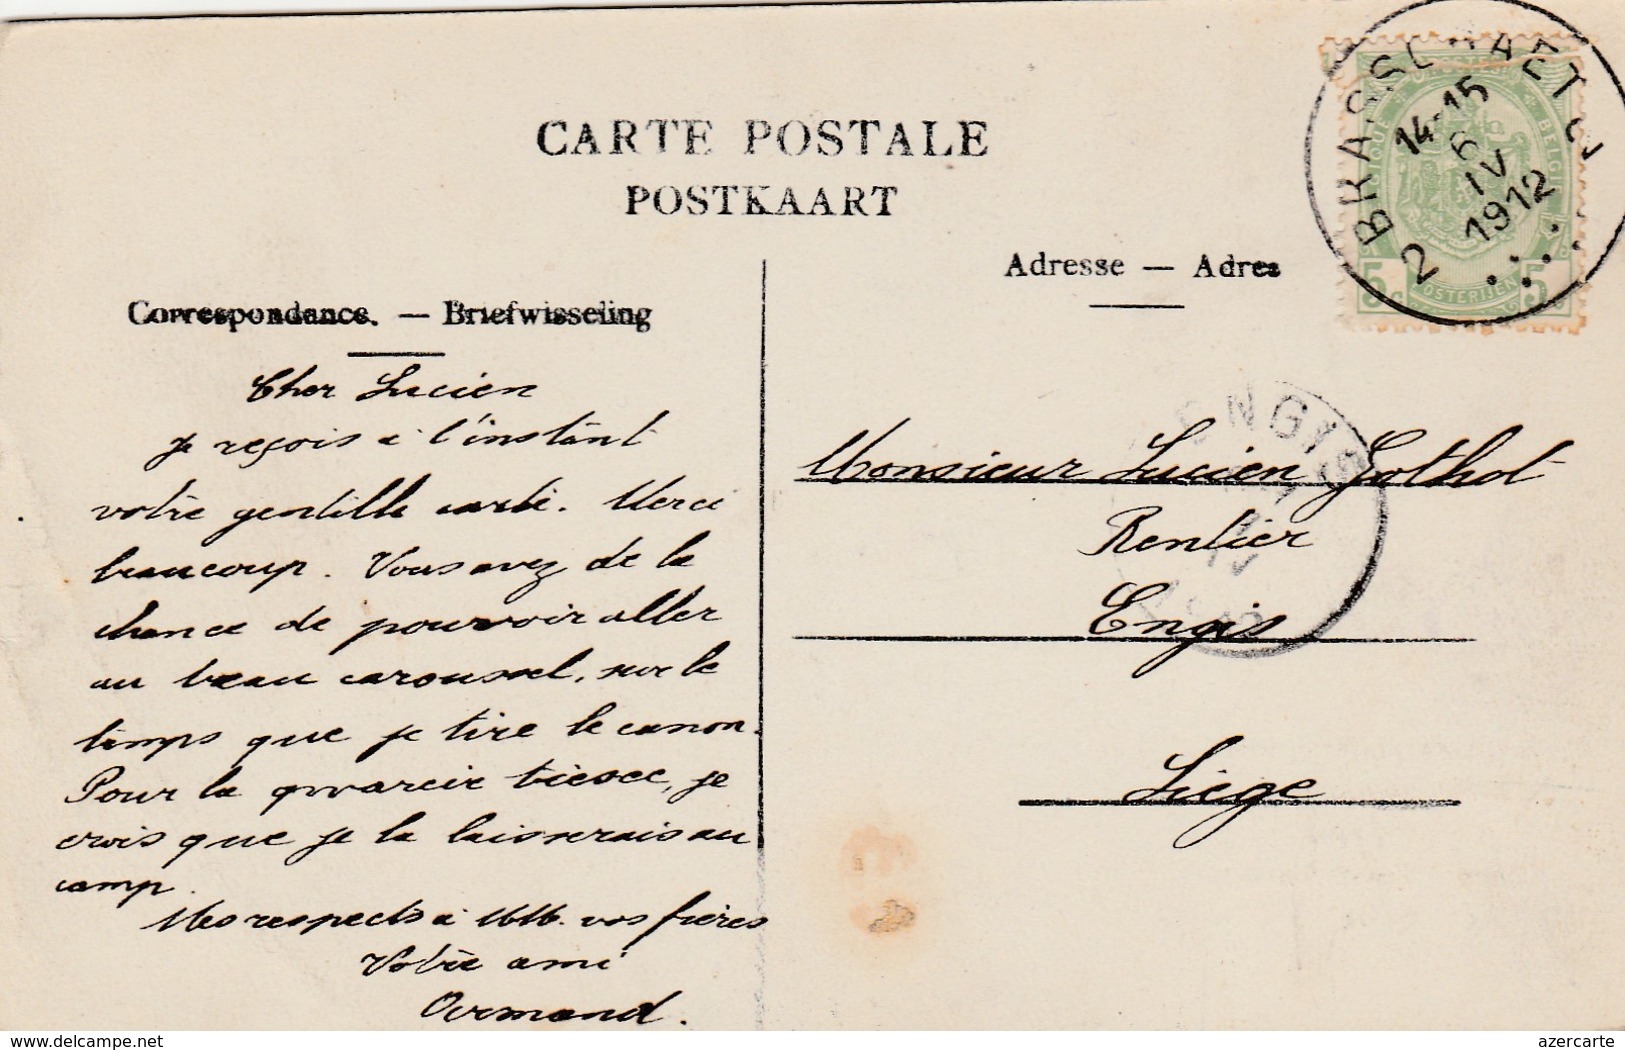 CARTE POSTALE
POSTKAART
Adresse — Adres
Correspondance. — Briefwisseling
Cher Lucien
Je reçois à l'instant
votre gentille carte. Merci
beaucoup. Vous avez de la
chance de pouvoir aller
au beau caroussel, sur le
temps que je tire le canon.
Pour la pièce, je
crois que je la laisserais au
camp.
Mes respects à MM. vos frères
Votre ami
Armand.
Monsieur Lucien Gothot
Rentier
Engis
Liège
BRASSCHAET
14-15
6
IV
1912
2
BELGIQUE BELGIE
POSTERIJEN
5c 5c
ENGIS
www.delcampe.net
azercarte